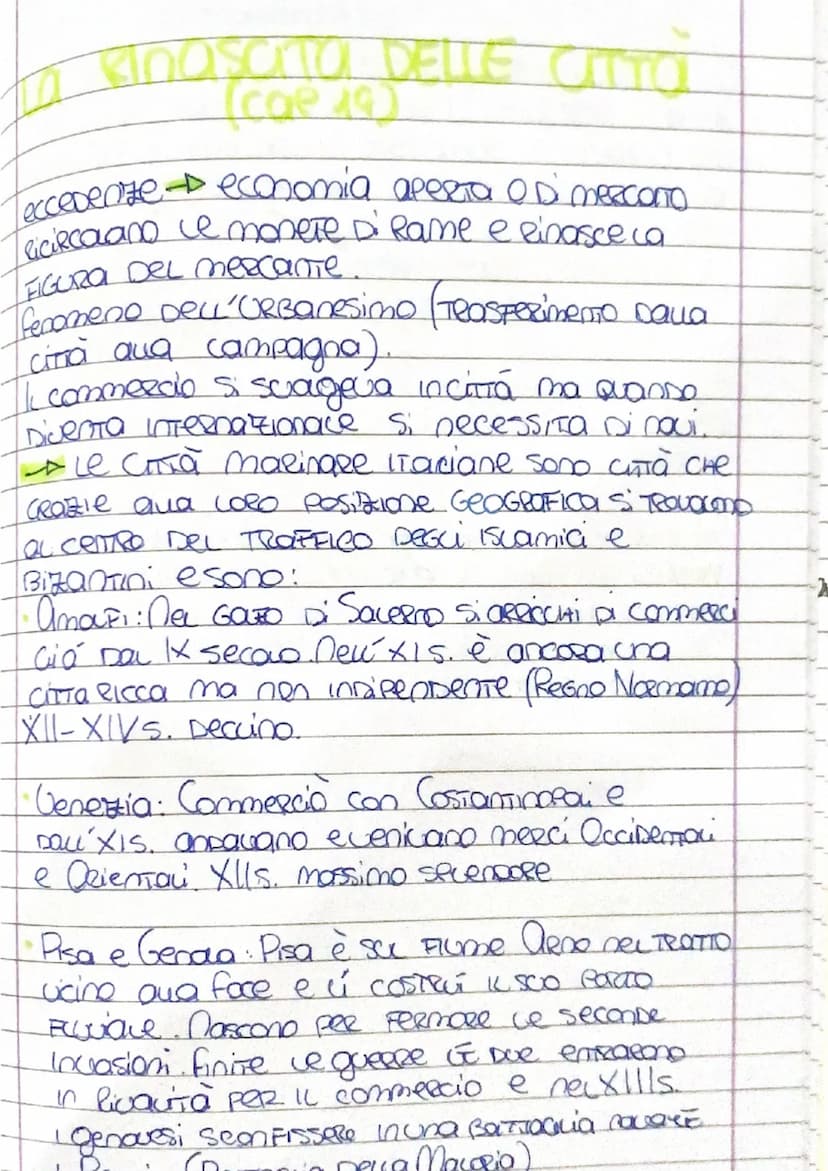 LA RINASCITA DELLE CITTÀ
(cap 19)
eccedenze → economia aperta o di mercato
ricircolano le monete di rame e rinasce la
figura del mercante.
fenomeno dell'urbanesimo (trasferimento dalla
città alla campagna).
Il commercio si svolgeva in città ma quando
diventa internazionale si necessita di navi.
→ Le città marinare italiane sono città che
grazie alla loro posizione geografica si trovarono
al centro del traffico degli islamici e
Bizantini e sono:
• Amalfi: Nel Golfo di Salerno si arricchì di commerci
già dal IX secolo. Nell'XI s. è ancora una
città ricca ma non indipendente (Regno Normanno)
XII-XIV s. declino.
• Venezia: Commerciò con Costantinopoli e
dall'XI s. andavano e venivano merci Occidentali
e Orientali. XII s. massimo splendore
• Pisa e Genova: Pisa è sul fiume Arno nel tratto
vicino alla foce e lì costruì il suo porto
fluviale. Nascono per fermare le seconde
invasioni. finite le guerre le due entrarono
in rivalità per il commercio e nel XIII s.
i genovesi sconfissero in una battaglia navale
della Maloria)